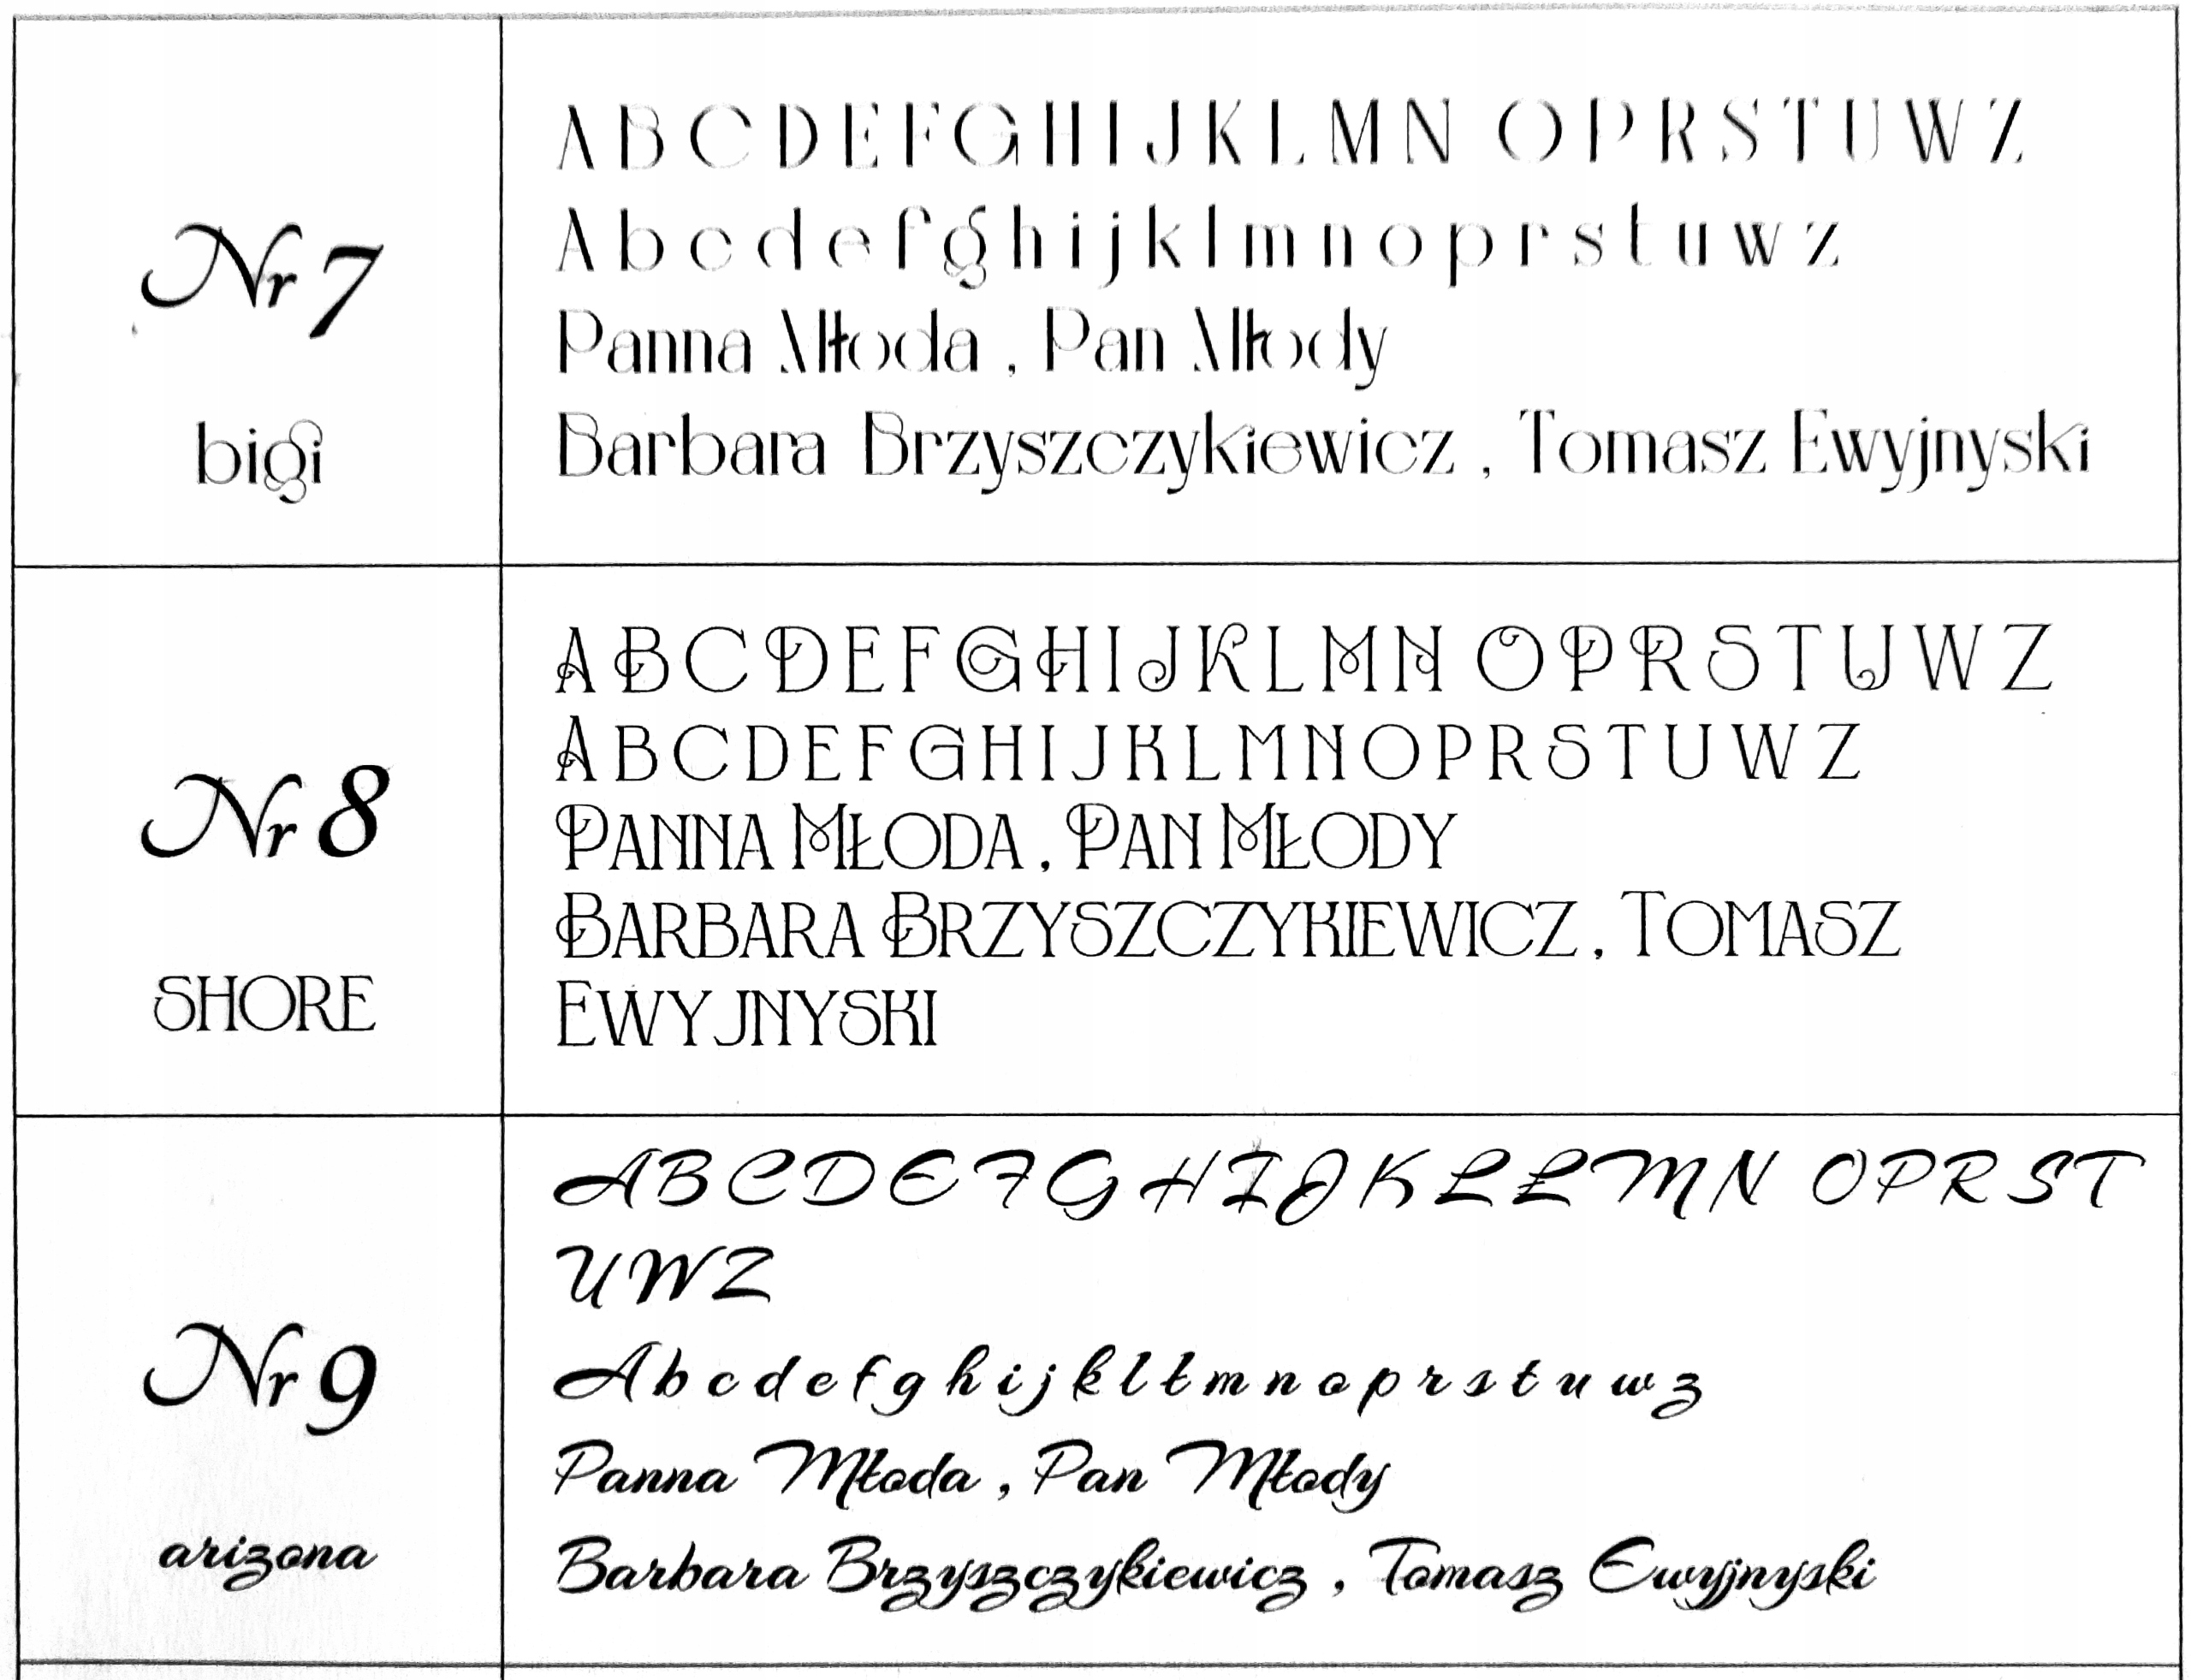 Nr 7
bigi
A B C D E F G H I J K L M N O P R S T U W Z
A b c d e f g h i j k l m n o p r s t u w z
Panna Młoda , Pan Młody
Barbara Brzyszczykiewicz , Tomasz Ewyjnyski
Nr 8
SHORE
A B C D E F G H I J K L M N O P R S T U W Z
A B C D E F G H I J K L M N O P R S T U W Z
PANNA MŁODA , PAN MŁODY
BARBARA BRZYSZCZYKIEWICZ , TOMASZ
EWYJNYSKI
Nr 9
arizona
A B C D E F G H I J K L Ł M N O P R S T
U W Z
A b c d e f g h i j k l ł m n o p r s t u w z
Panna Młoda , Pan Młody
Barbara Brzyszczykiewicz , Tomasz Ewyjnyski